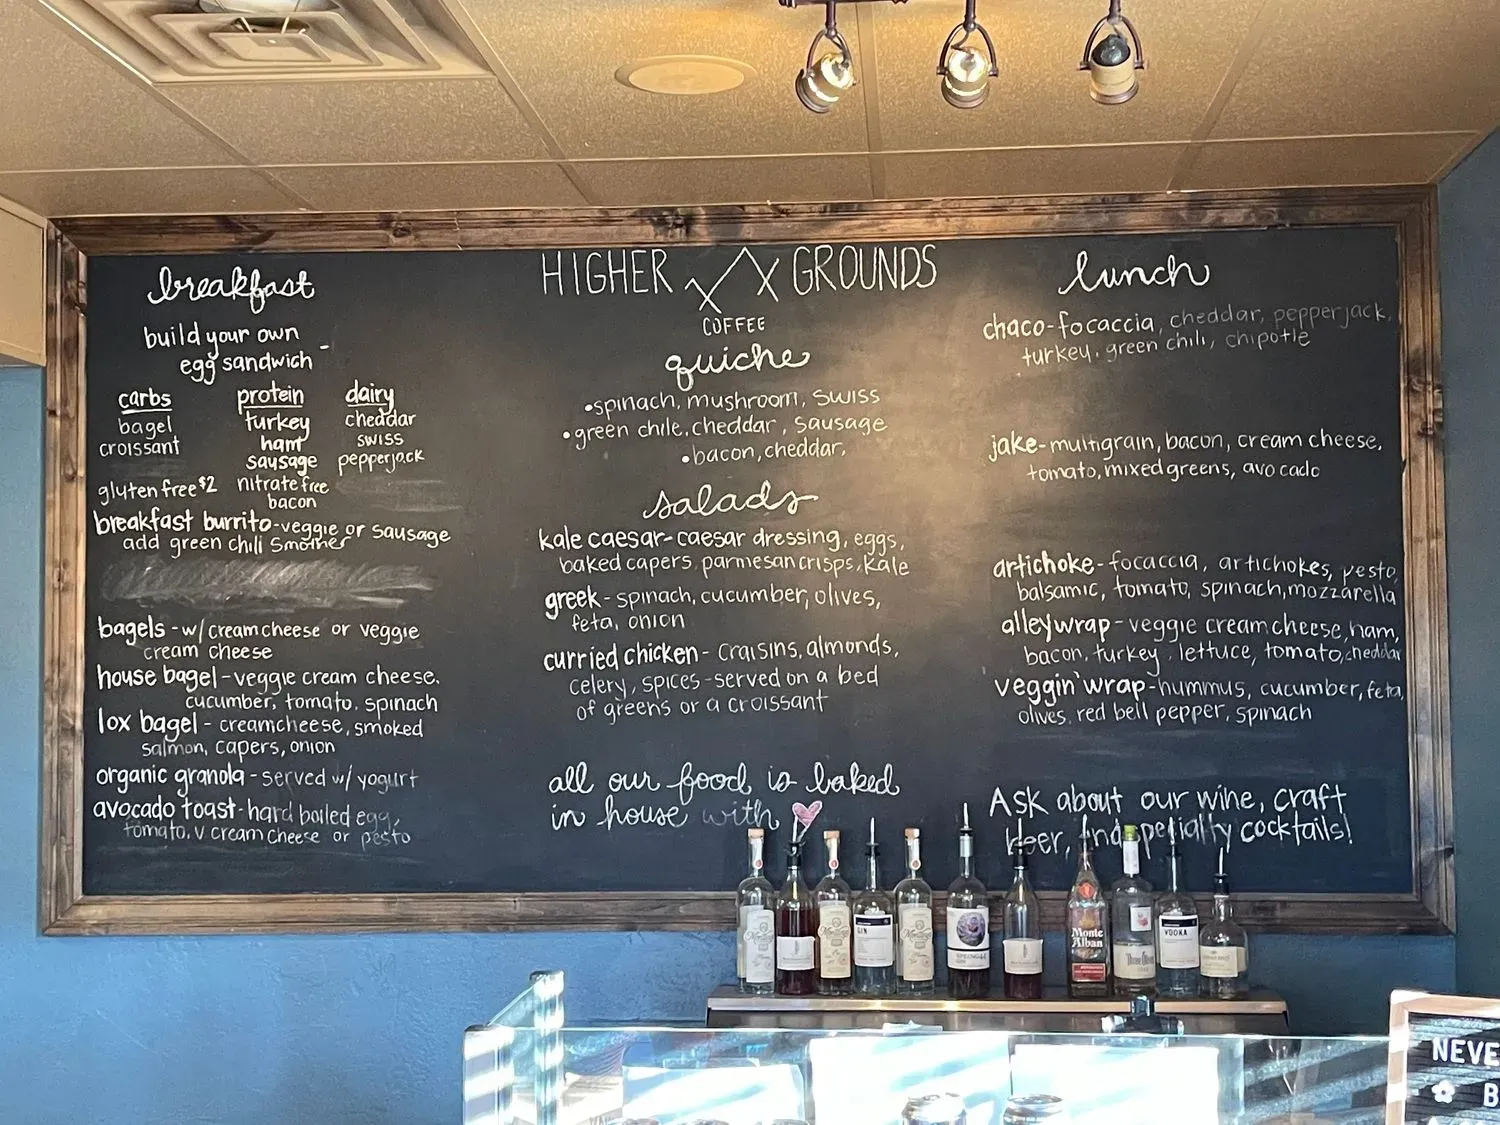 HIGHER GROUNDS
COFFEE
breakfast
build your own
egg sandwich -
carbs
bagel
croissant
gluten free $2
protein
turkey
ham
sausage
nitrate free
bacon
dairy
cheddar
swiss
pepperjack
breakfast burrito-veggie or sausage
add green chili smother
bagels - w/ creamcheese or veggie
cream cheese
house bagel-veggie cream cheese,
cucumber, tomato, spinach
lox bagel - creamcheese, smoked
salmon, capers, onion
organic granola - served w/ yogurt
avocado toast-hard boiled egg,
tomato, v cream cheese or pesto
quiche
•spinach, mushroom, swiss
•green chile, cheddar, sausage
•bacon, cheddar.
salads
kale caesar-caesar dressing, eggs,
baked capers, parmesan crisps, kale
greek - spinach, cucumber, olives,
feta, onion
curried chicken - craisins, almonds,
celery, spices-served on a bed
of greens or a croissant
all our food is baked
in house with
lunch
chaco-focaccia, cheddar, pepperjack,
turkey, green chili, chipotle
jake-multigrain, bacon, cream cheese,
tomato, mixed greens, avocado
artichoke-focaccia, artichokes, pesto,
balsamic, tomato, spinach, mozzarella
alleywrap-veggie creamcheese, ham,
bacon, turkey, lettuce, tomato, cheddar
veggin' wrap-hummus, cucumber, feta,
olives, red bell pepper, spinach
Ask about our wine, craft
beer, and specialty cocktails!
GIN
Monte
Alban
Three Olives
VODKA
NEVE
B